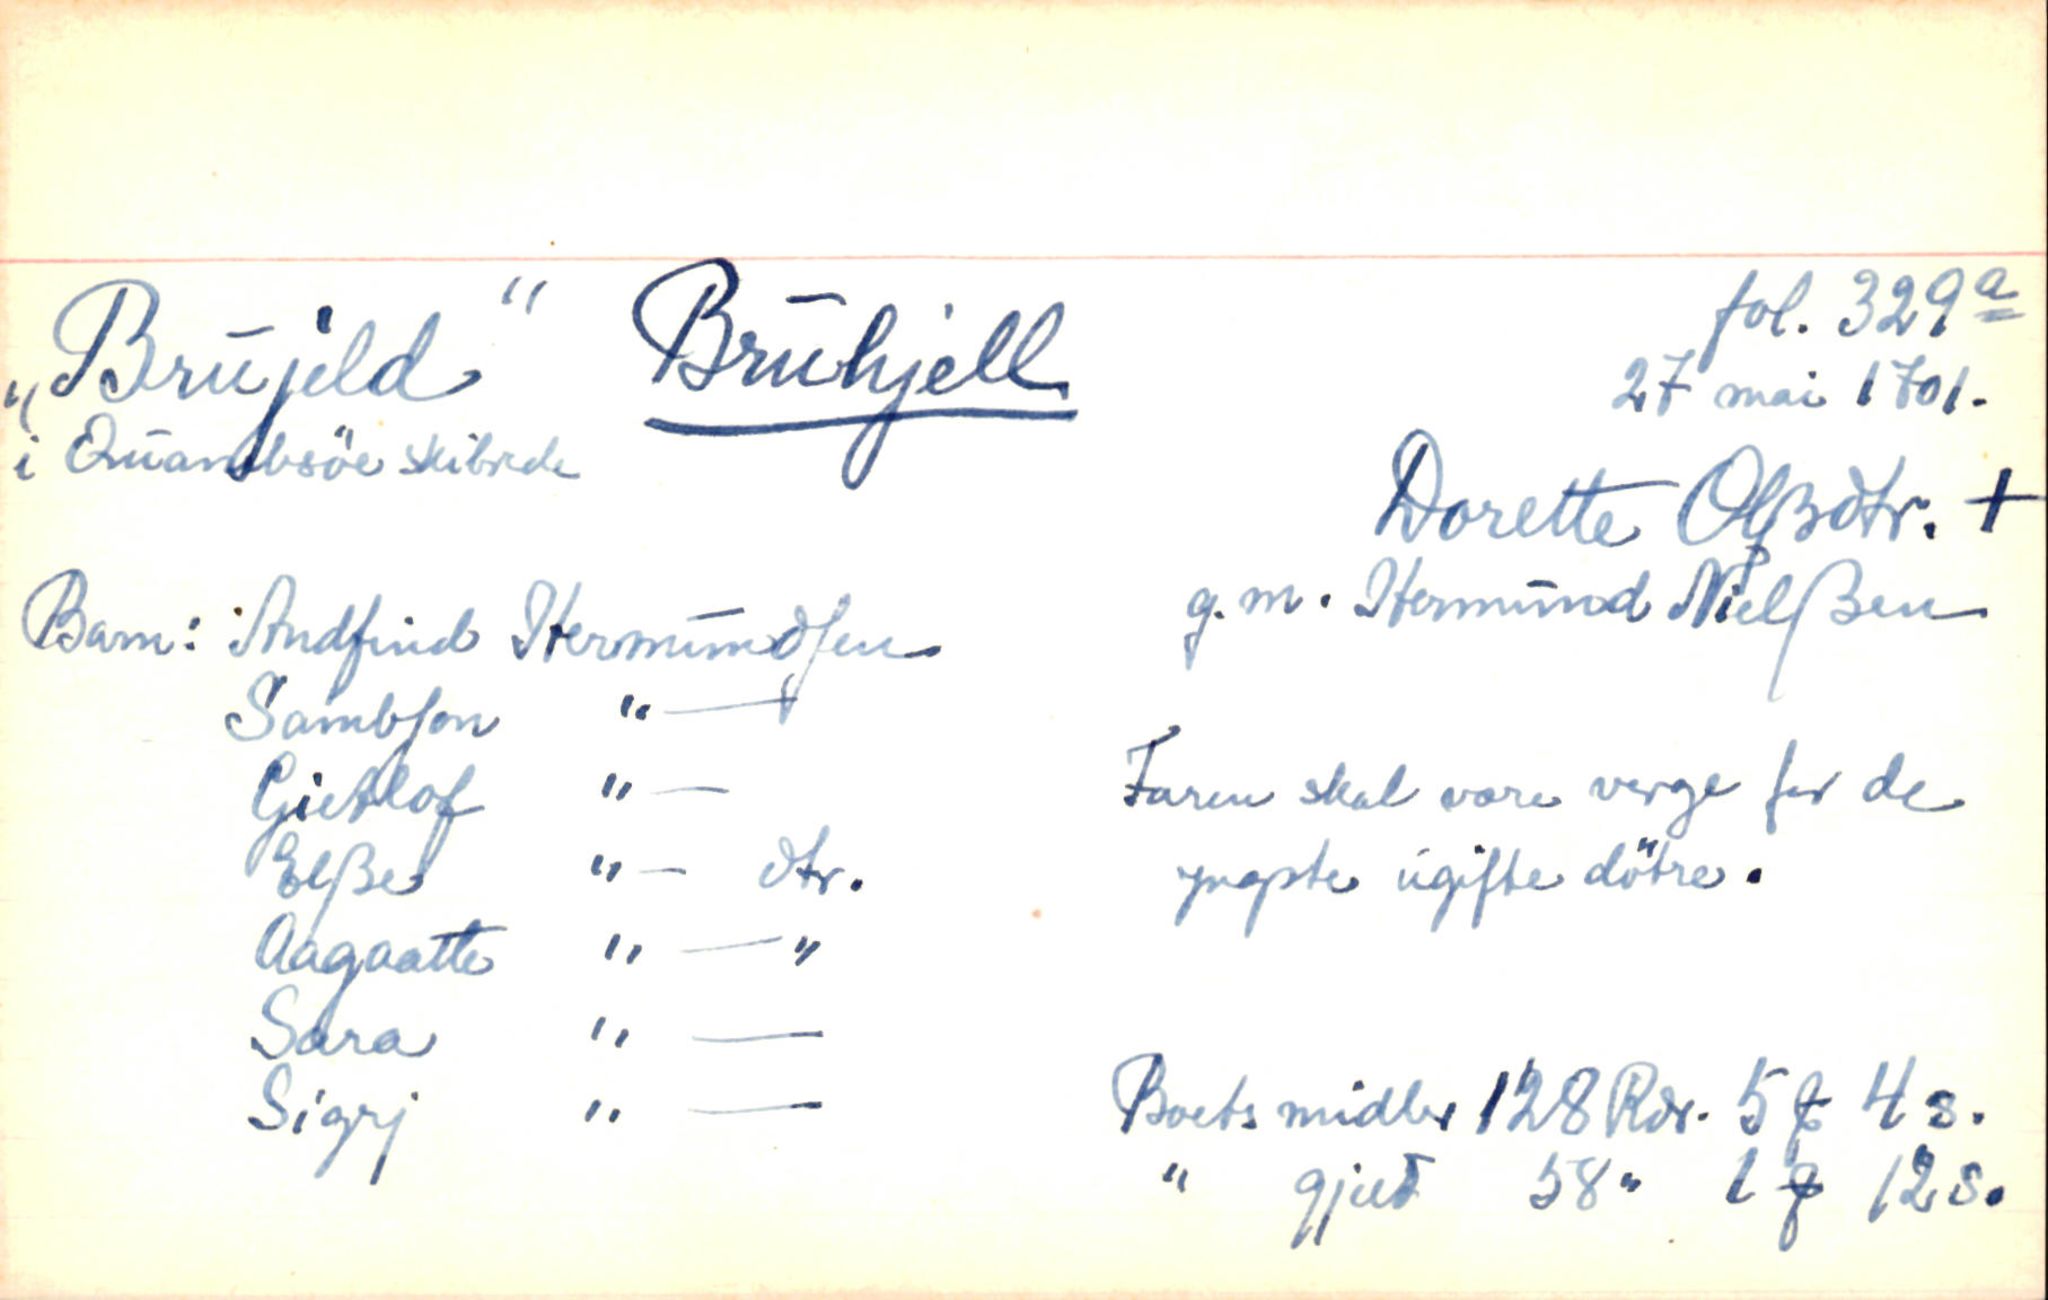 „Brujeld“ Bruhjell
i Quambsöe skibrede
fol. 329a
27 mai 1701.
Dorette Olßdtr. +
g.m. Hermund Nielßen
Barn: Andfind Hermundsen
Sambson " —
Gietlof " —
Elße " — dtr.
Aagaatte " — "
Sara " —
Sigrj " —
Faren skal være verge for de
yngste ugifte dötre.
Boets midler 128 Rdr. 5 ƒ 4 s.
" gjeld 58 " 1 ƒ 12 s.